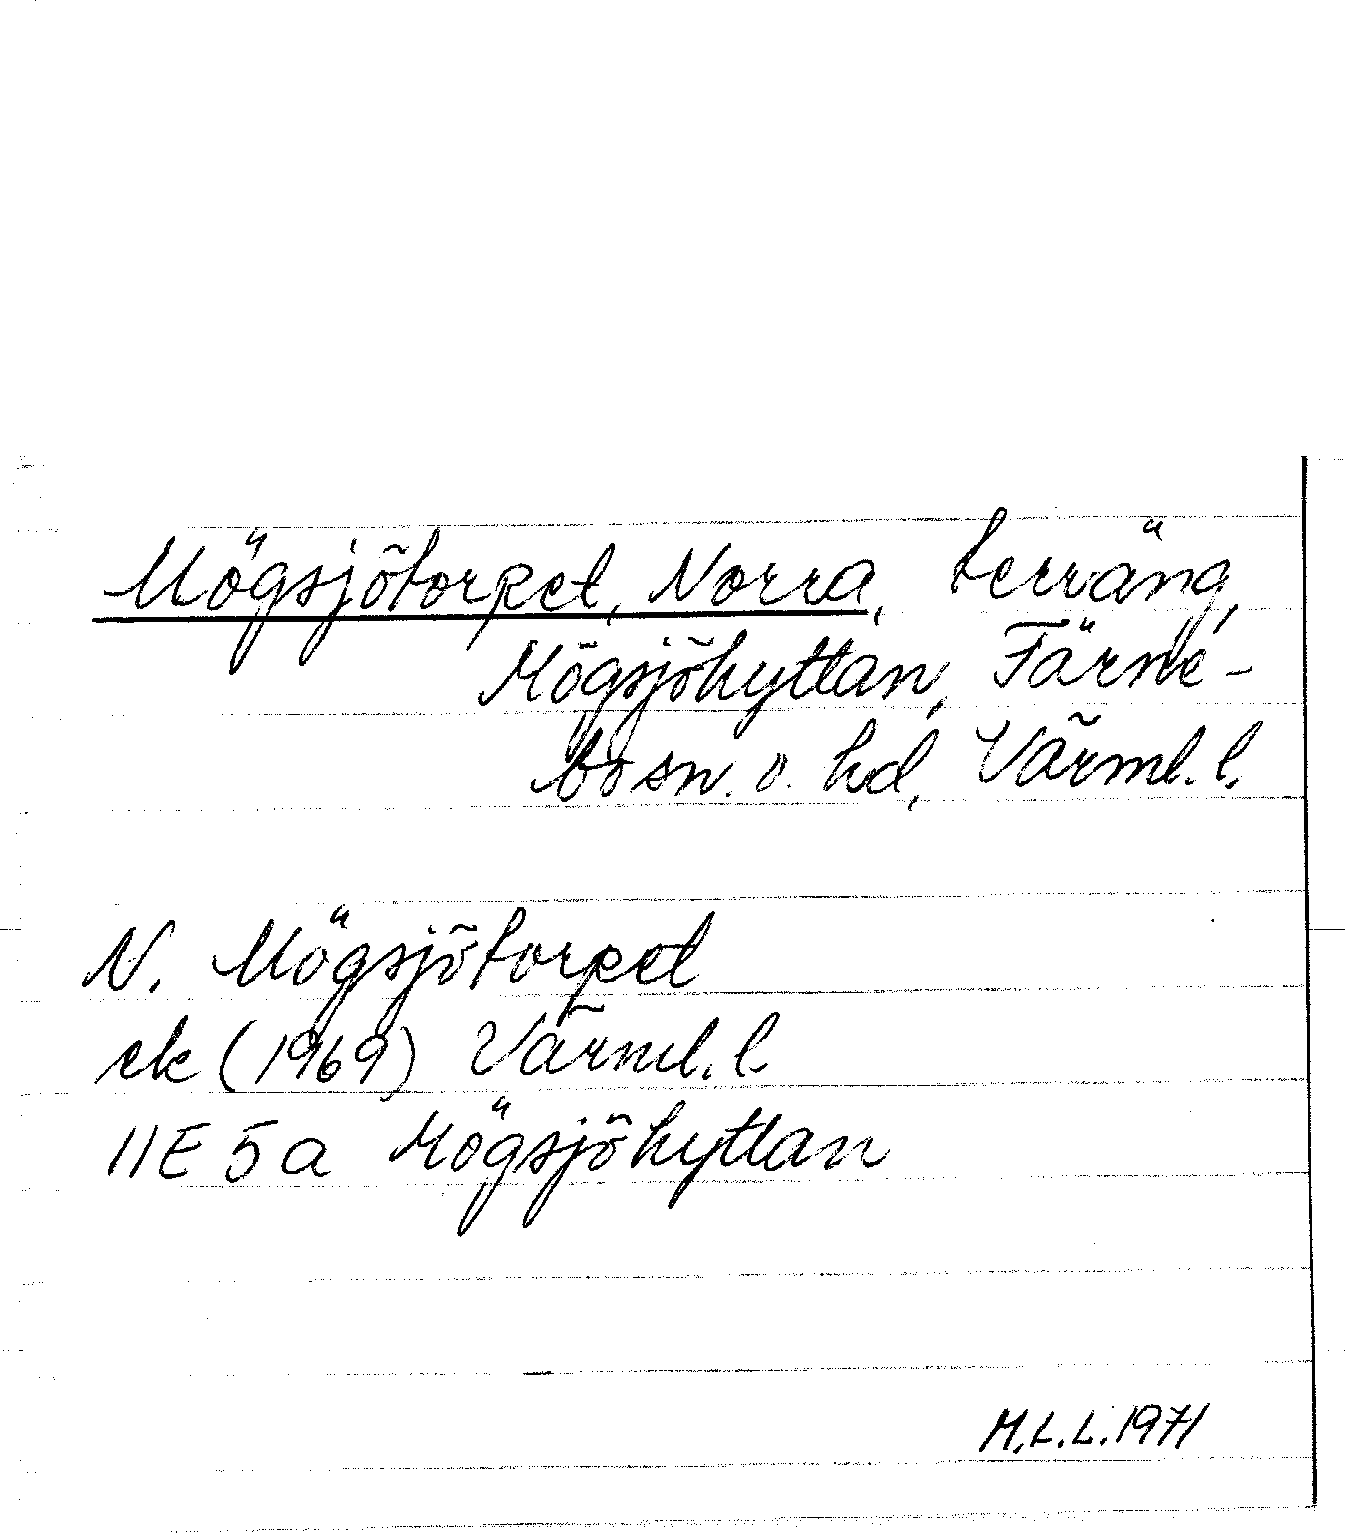 Mögsjötorpet, Norra, terräng,
Mögsjöhyttan, Färne-
bo sn. o. hd, Värml. l.
N. Mögsjötorpet
ek (1969) Värml. l.
11E 5a Mögsjöhyttan
M.L.L. 1971